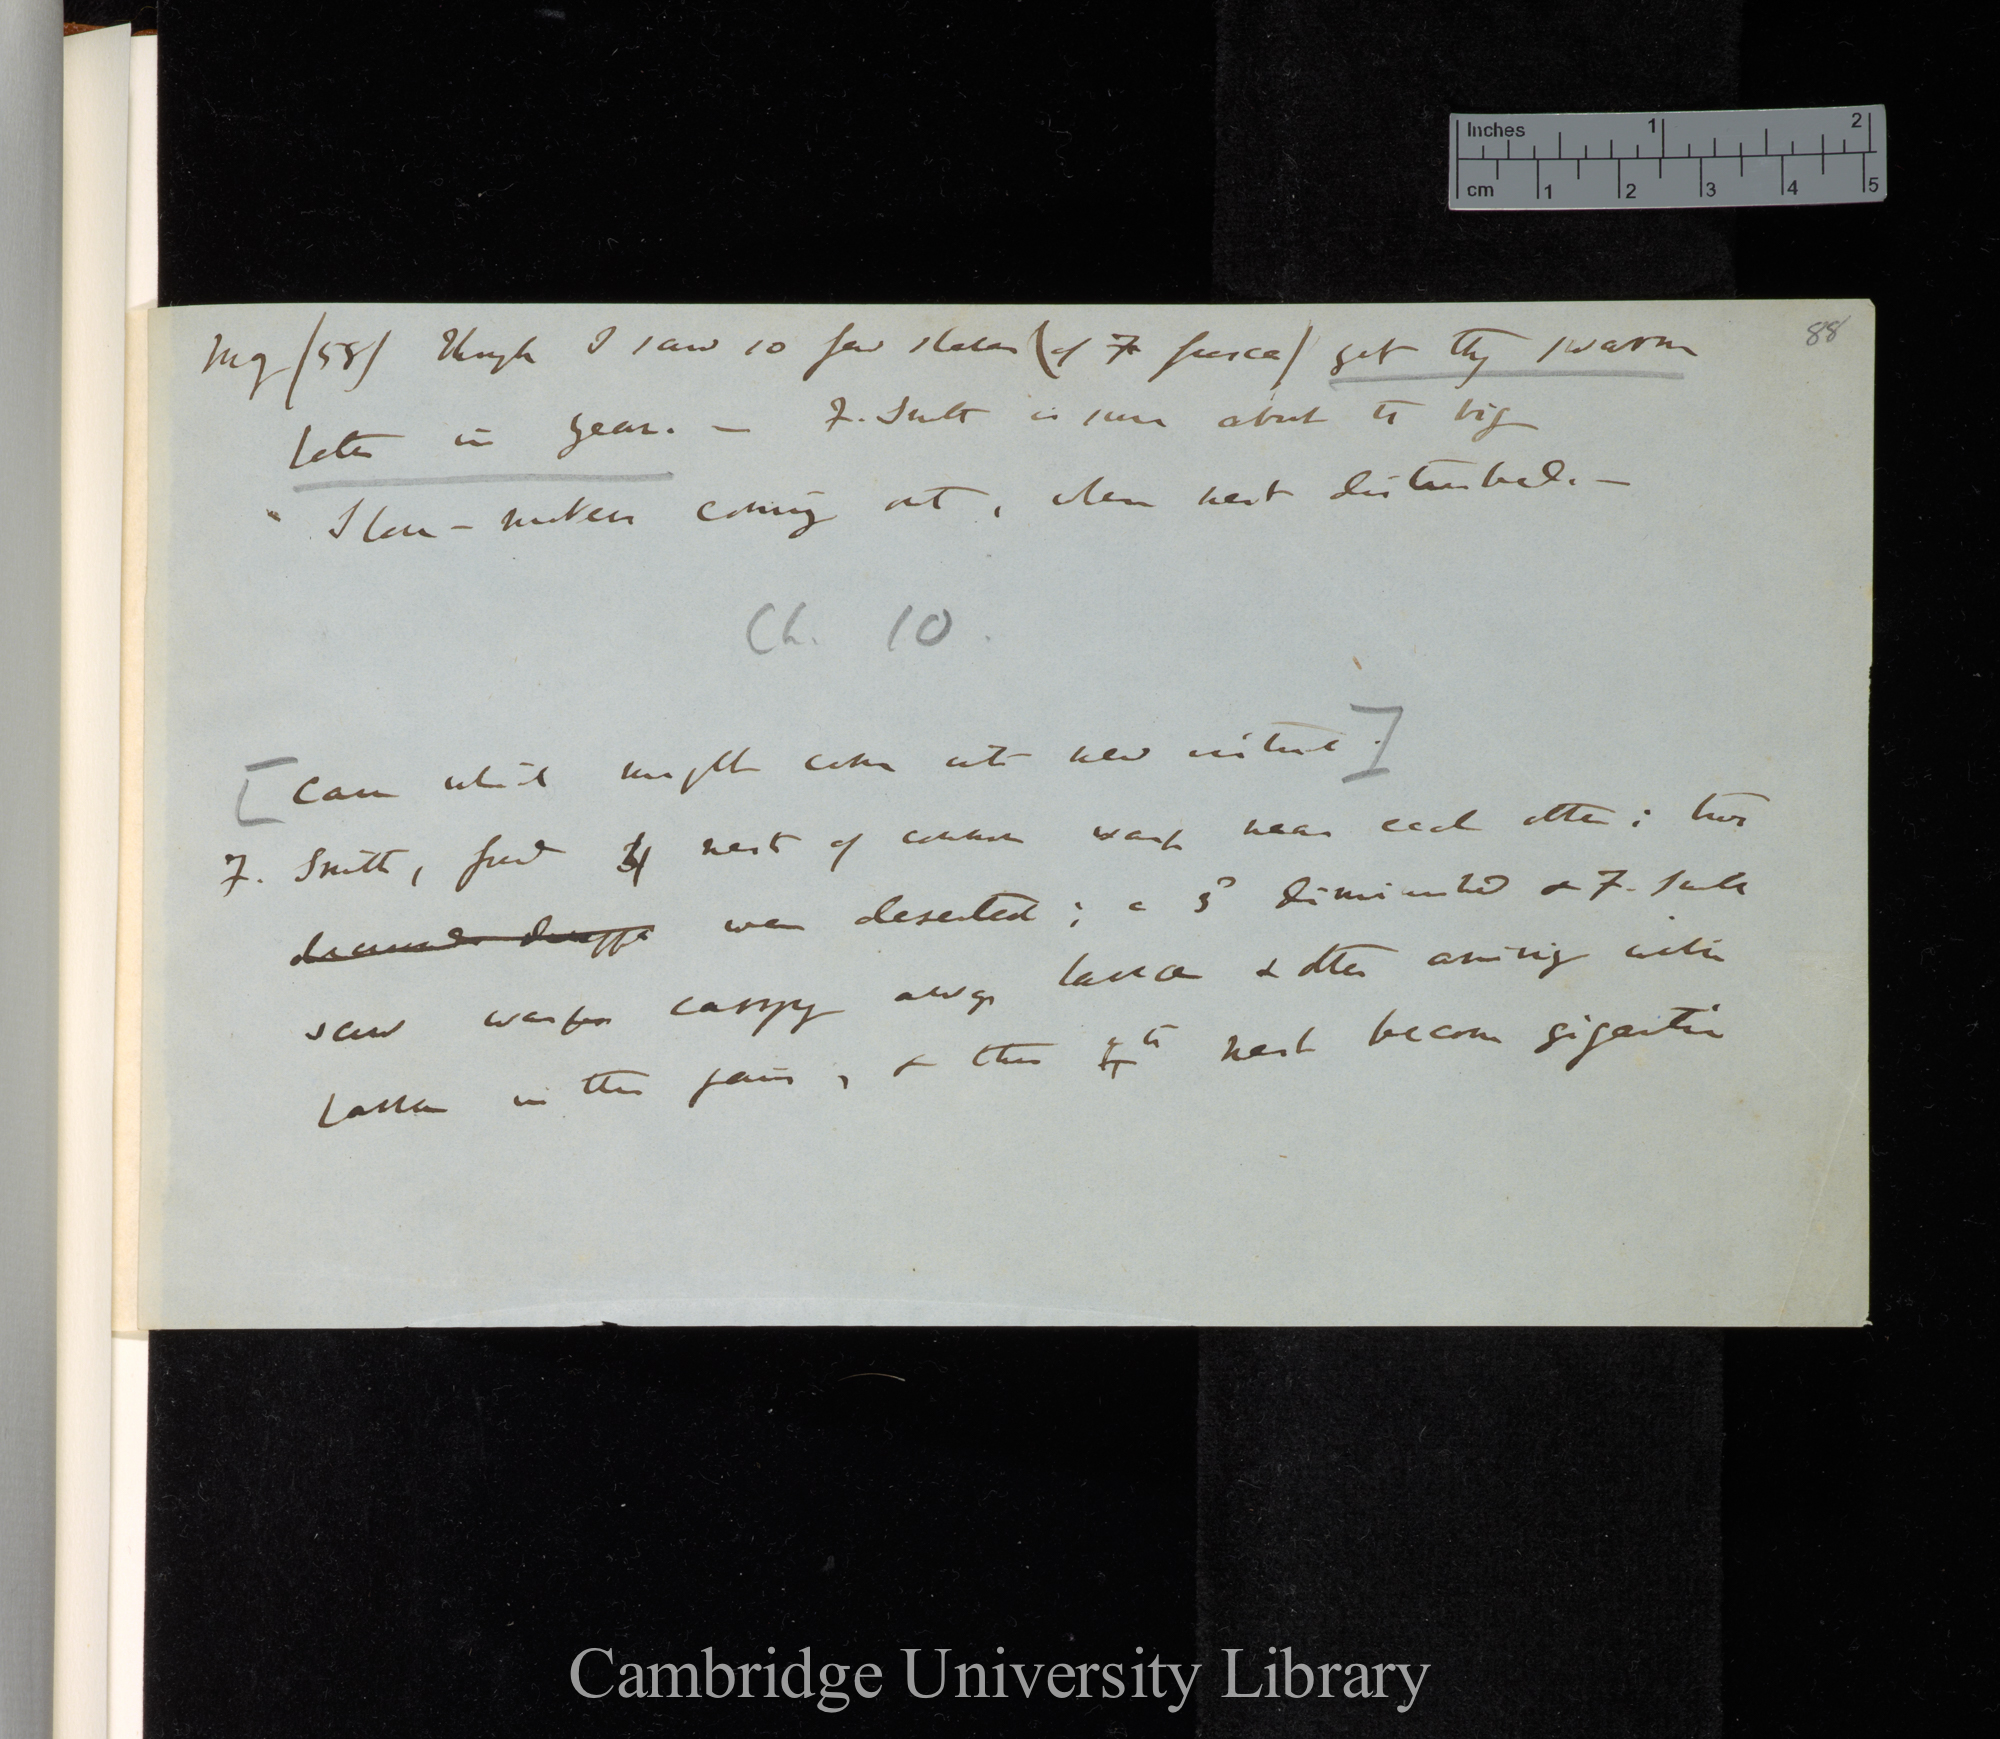 Inches 1 2
cm 1 2 3 4 5
88
/58/ Though I saw so few slaves (of F fusca) yet they swarm
later in year. — F. Smith is sure about the big
Slave-makers coming out, when nest disturbed. —
Ch. 10.
[Case which might come into new instinct.]
F. Smith, found 4 nest of common wasp near each other; two
were deserted; a 3d diminished & F. Smith
saw wasps carrying away larvæ & others arriving with
larvæ in their jaws, & the 4th nest become gigantic
Cambridge University Library